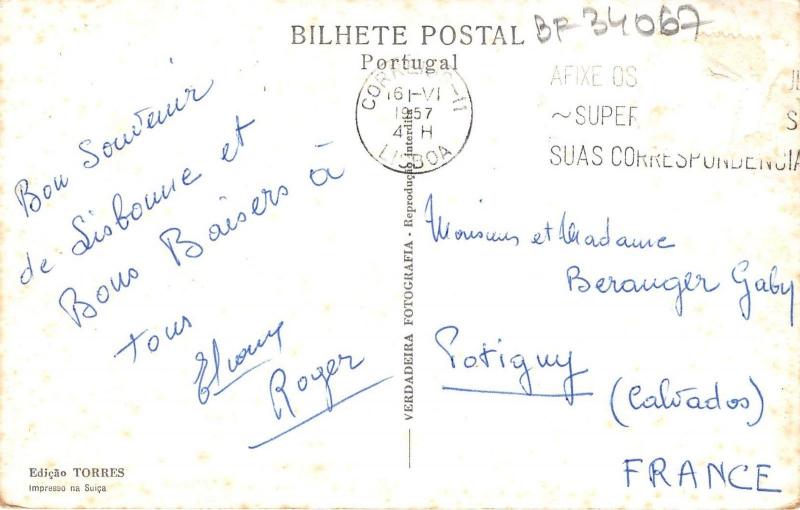 BILHETE POSTAL
Portugal
BF 34067
CORREIOS-11
16-VI
1957
4 H
LISBOA
AFIXE OS
~SUPER
S
SUAS CORRESPONDENCIA
Bon Souvenir
de Lisbonne et
Bons Baisers à
tous
Roger
VERDADEIRA FOTOGRAFIA - Reprodução interdita
Monsieur et Madame
Beranger Gaby
Potigny
(Calvados)
FRANCE
Edição TORRES
Impresso na Suiça